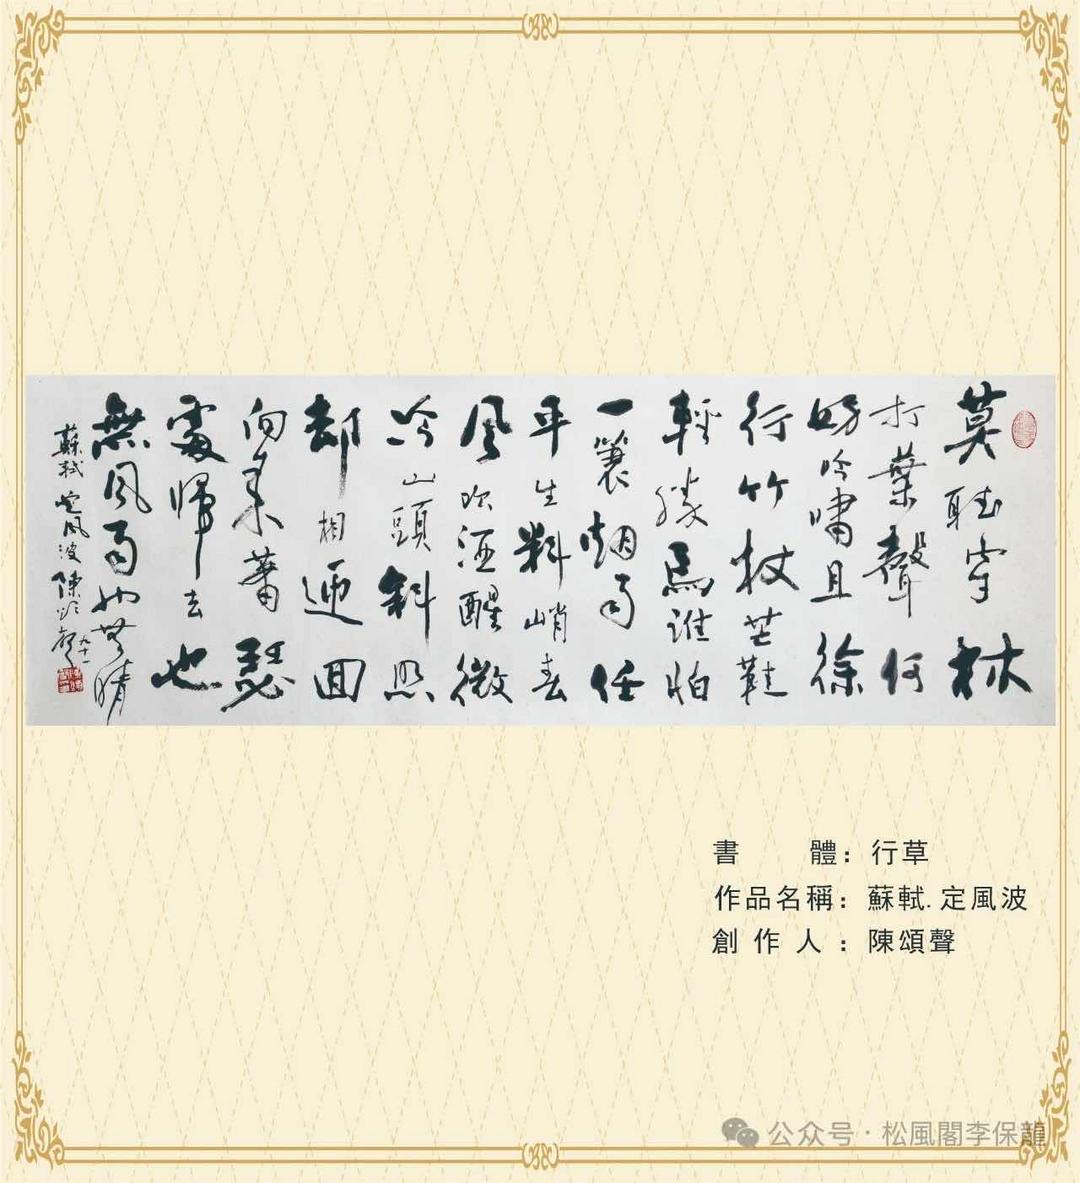 莫聴穿林
打葉聲何
妨吟嘯且徐
行竹杖芒鞋
輕勝馬誰怕
一蓑烟雨任
平生料峭春
風吹酒醒微
冷山頭斜照
却相迎回
向来蕭瑟
處歸去也
無風雨也無晴
蘇軾定風波陳頌聲九十一
書 體：行草
作品名稱：蘇軾.定風波
創作人：陳頌聲
公众号·松風閣李保龍